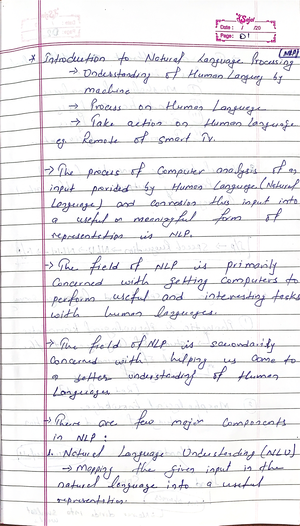 Date: / /20
Page: 01
* Introduction to Natural Language Processing (NLP)
→ Understanding of Human Languag by
machine
→ Process on Human Language
→ Take action on Human Language
eg. Remote of Smart Tv.
→ The process of Computer analysis of an
input provided by Human Language (Natural
Language) and this input into
a useful or meaningful form of
representation is NLP.
→ The field of NLP is primarily
Concerned with getting computers to
perform useful and interesting tasks
with human languages.
→ The field of NLP is secondarily
Concerned with helping us come to
a better understanding of Human
Languages
→ There are few major Components
in NLP :
1. Natural Language Understanding (NLU)
→ Mapping the given input in the
natural language into a useful
representation.